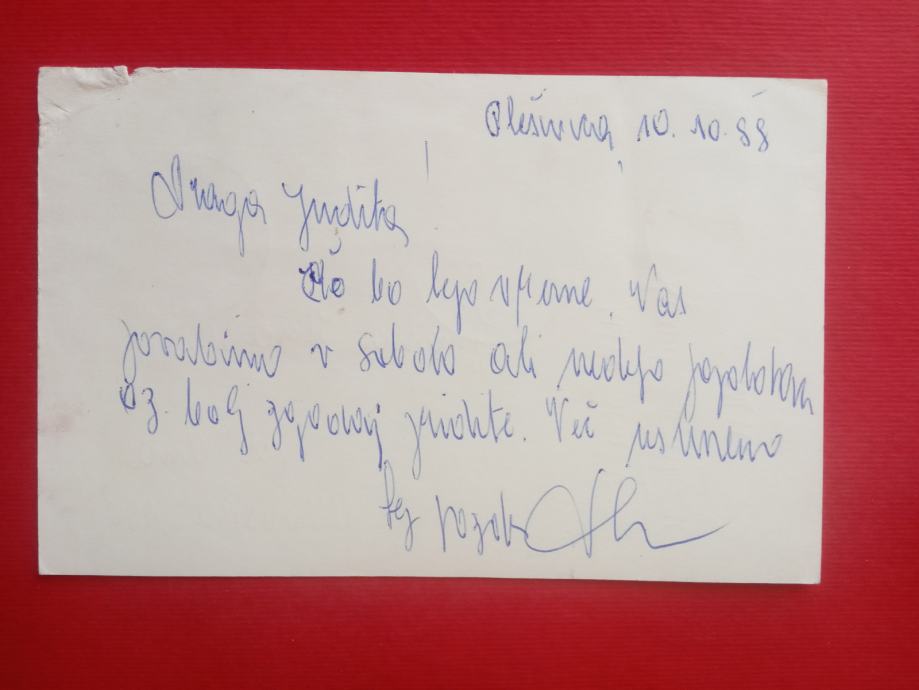 Plešivica, 10. 10. 88
Draga Judita!
Če bo lepo vreme, Vas
povabimo v soboto ali nedeljo popoldan
oz. bolj zgodaj pridite. Več ustmeno
lep pozdrav